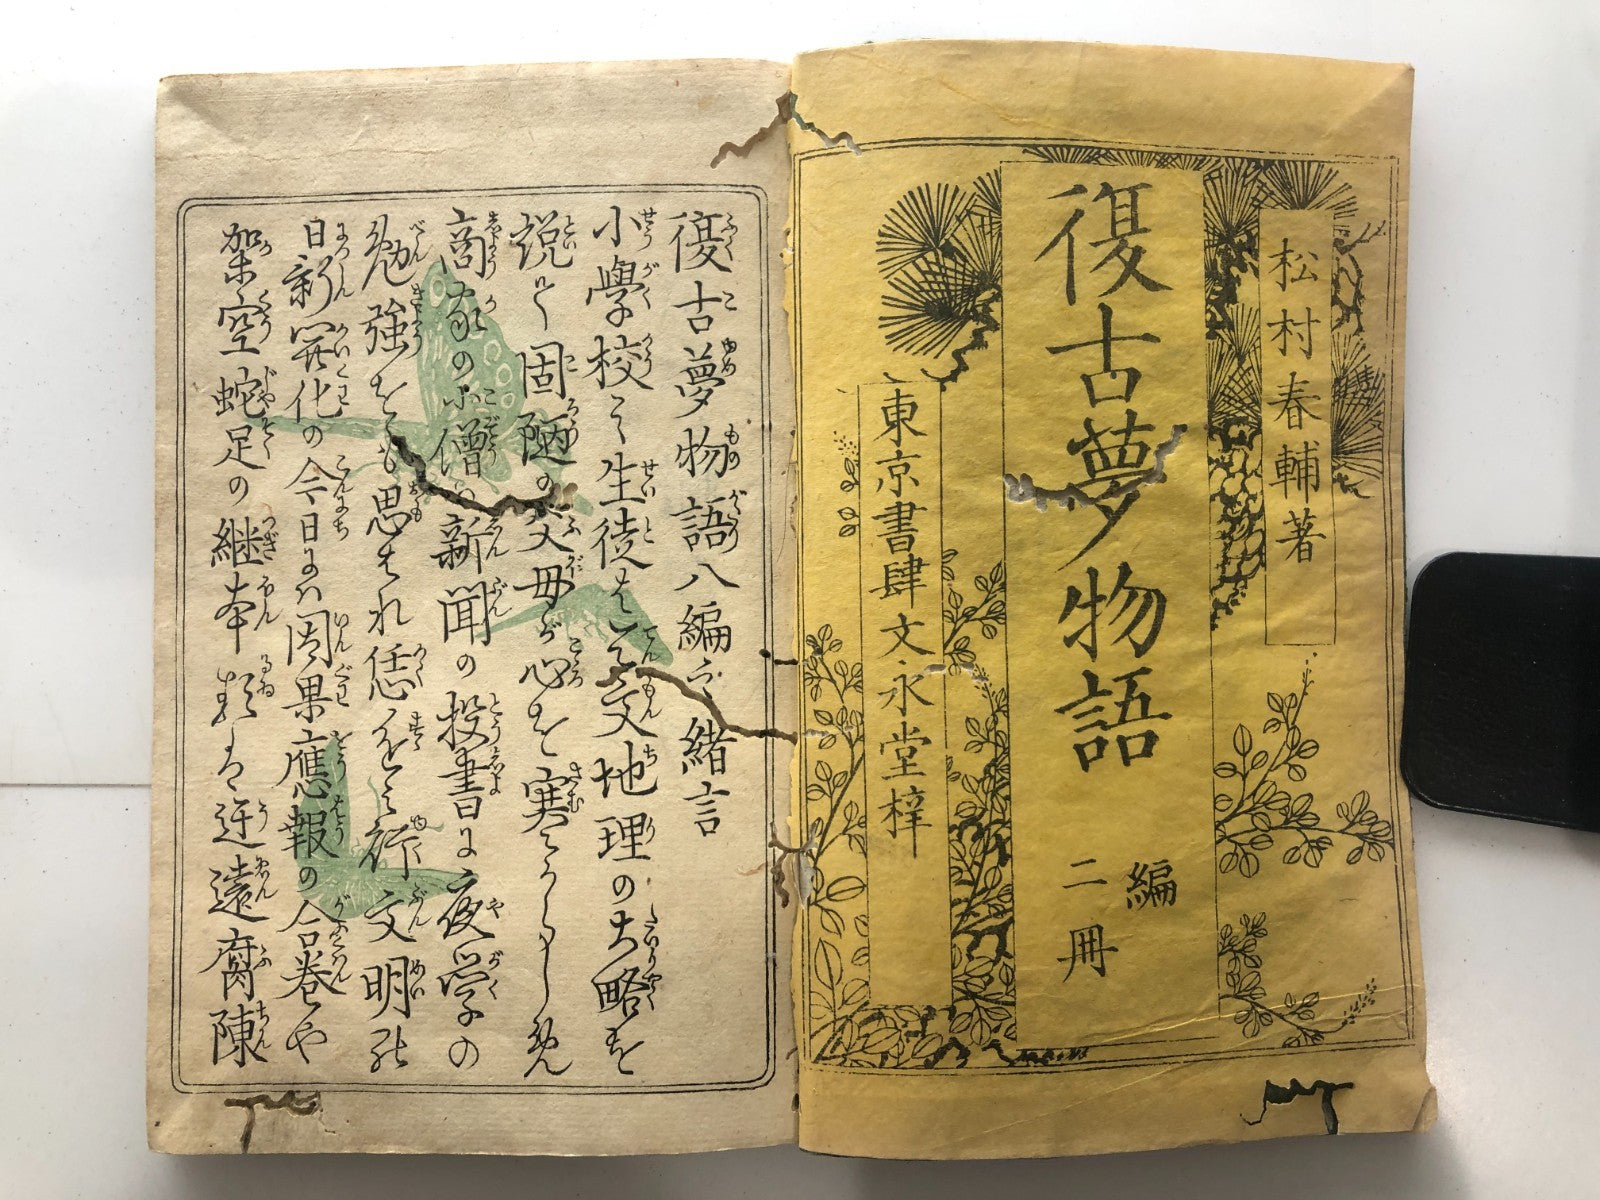 松村春輔著
復古夢物語
編
二冊
東京書肆文永堂梓
復古夢物語八編之緒言
小學校之生徒はて文地理の大略を
説て固陋の父母が心を寒からしめ
商家の小僧の新聞の投書に夜学の
勉強をも思はれ
日新開化の今日には因果應報の合巻や
架空蛇足の継本類は迂遠腐陳